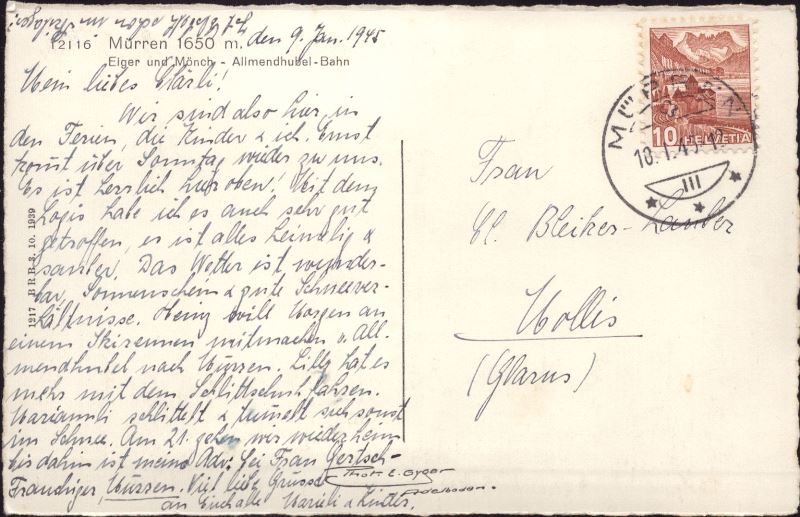 12116 Mürren 1650 m. den 9. Jan. 1945
Eiger und Mönch - Allmendhubel-Bahn
Mein liebes Clärli!
Wir sind also hier in
den Ferien, die Kinder & ich. Ernst
kommt über Sonntag wieder zu uns.
Es ist herrlich hier oben! Mit dem
Logis habe ich es auch sehr gut
getroffen, es ist alles heimelig &
sauber. Das Wetter ist wunder-
bar, Sonnenschein & gute Schneever-
hältnisse. Heiny will Morgen an
einem Skirennen mitmachen v. All-
mendhubel nach Mürren. Lilly hat es
mehr mit dem Schlittschuhfahren.
Mariannli schlittelt & tummelt sich sonst
im Schnee. Am 21. gehen wir wieder heim
bis dahin ist meine Adr. bei Frau Gertsch-
Frauchiger, Mürren. Viel liebe Grüsse
an Euch alle Marieli & Kinder.
1217 BRB 3. 10. 1939
Phot. E. Gyger
Adelboden.
HELVETIA
10
MÜRREN
10.1.45
III
Frau
Cl. Bleiker-
Mollis
(Glarus)